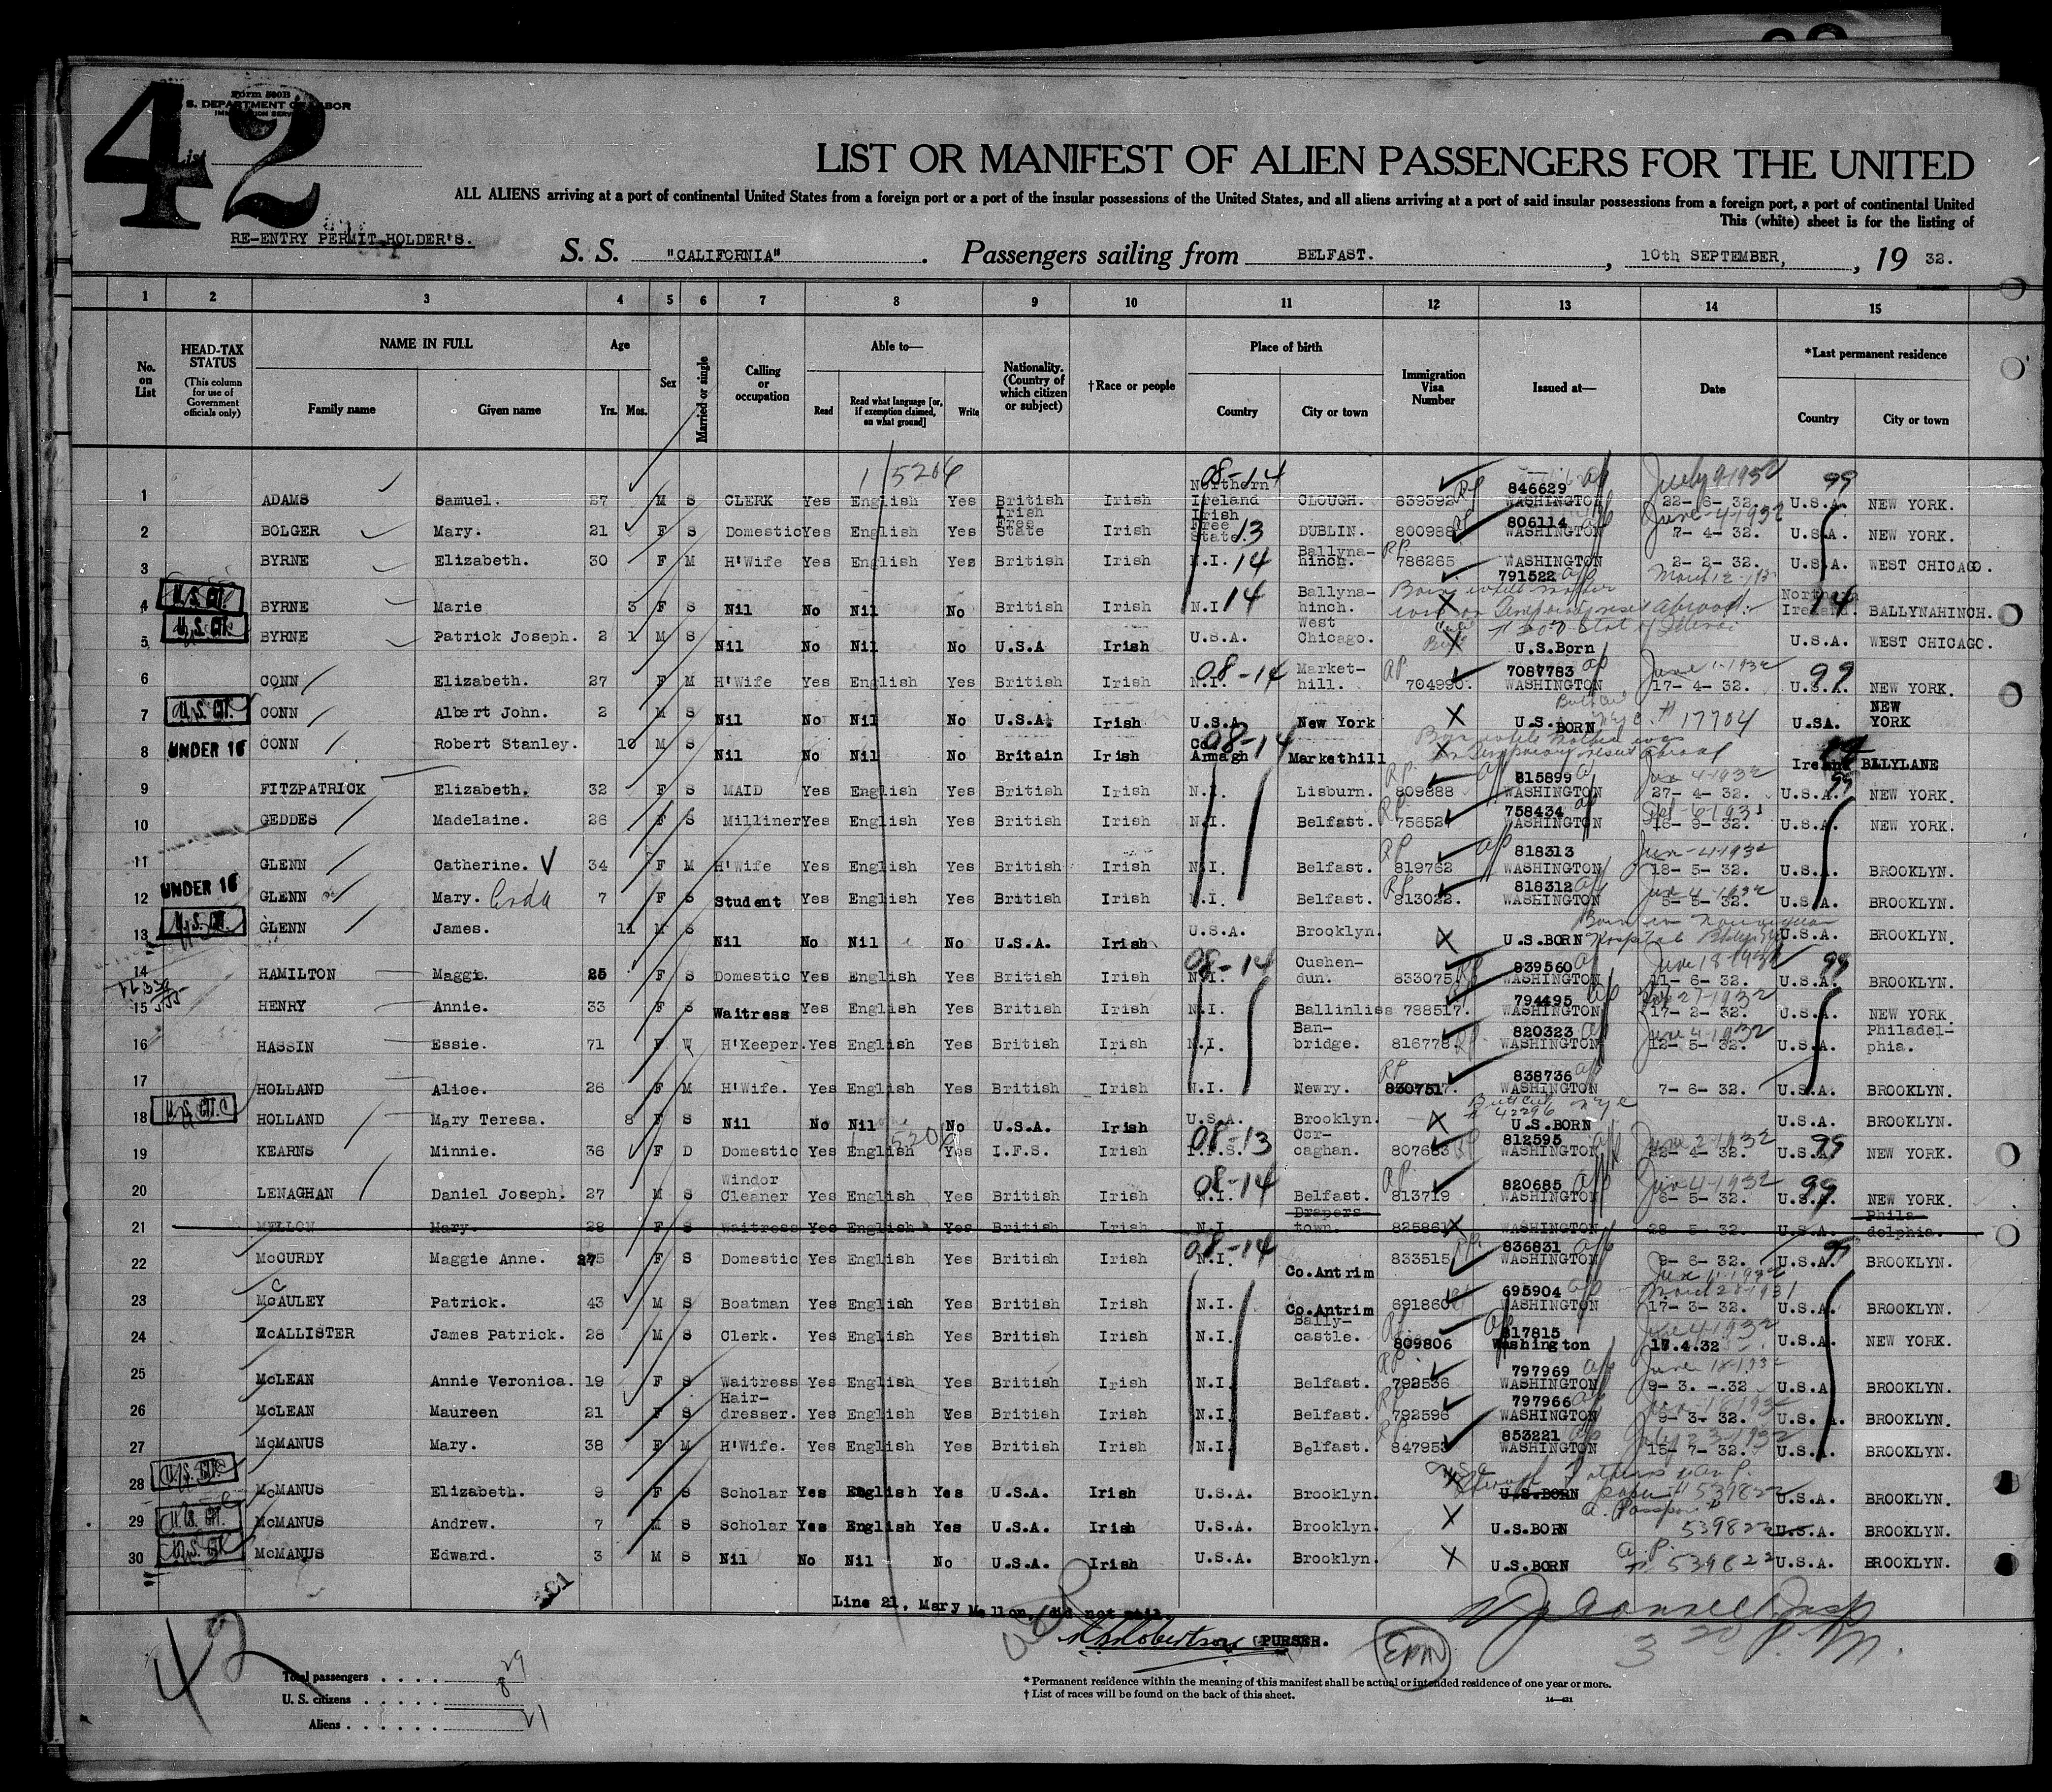 42
Form 500B
U. S. DEPARTMENT OF LABOR
IMMIGRATION SERVICE
List
LIST OR MANIFEST OF ALIEN PASSENGERS FOR THE UNITED
ALL ALIENS arriving at a port of continental United States from a foreign port or a port of the insular possessions of the United States, and all aliens arriving at a port of said insular possessions from a foreign port, a port of continental United
This (white) sheet is for the listing of
RE-ENTRY PERMIT HOLDER'S.
S. S. "CALIFORNIA". Passengers sailing from BELFAST. , 10th SEPTEMBER, , 19 32.
1 2 3 4 5 6 7 8 9 10 11 12 13 14 15
No. on List
HEAD-TAX STATUS
(This column for use of Government officials only)
NAME IN FULL
Family name Given name
Age
Yrs. Mos.
Sex
Married or single
Calling or occupation
Able to—
Read Read what language [or, if exemption claimed, on what ground] Write
Nationality. (Country of which citizen or subject)
†Race or people
Place of birth
Country City or town
Immigration Visa Number
Issued at—
Date
*Last permanent residence
Country City or town
1/5204
1 ADAMS Samuel. 27 M S CLERK Yes English Yes British Irish Northern Ireland 08-14 CLOUGH. 839392 RP 846629 WASHINGTON July 9 1932 22-6-32. U.S.A. 99 NEW YORK.
2 BOLGER Mary. 21 F S Domestic Yes English Yes Irish Free State Irish Irish Free State. 13 DUBLIN. 800988 806114 WASHINGTON June-4-1932 7-4-32. U.S.A. NEW YORK.
3 BYRNE Elizabeth. 30 F M H'Wife Yes English Yes British Irish N.I. 14 Ballynahinch. RP 786265 WASHINGTON 791522 2-2-32. U.S.A. WEST CHICAGO.
4 U.S. CIT. BYRNE Marie 3 F S Nil No Nil No British Irish N.I 14 Ballynahinch. X Born while mother was on temporary visit abroad. Northern Ireland. 14 BALLYNAHINCH.
5 U.S. CIT. BYRNE Patrick Joseph. 2 1 M S Nil No Nil No U.S.A Irish U.S.A. West Chicago. X U.S.Born U.S.A. WEST CHICAGO.
6 CONN Elizabeth. 27 F M H'Wife Yes English Yes British Irish N.I. 08-14 Market-hill. 704990. 7087783 WASHINGTON June 1-1932 17-4-32. U.S.A. 99 NEW YORK.
7 U.S. CIT. CONN Albert John. 2 M S Nil No Nil No U.S.A. Irish U.S.A. New York X U.S. BORN # 17704 U.SA. NEW YORK
8 UNDER 16 CONN Robert Stanley. 10 M S Nil No Nil No Britain Irish Co. Armagh 08-14 Markethill X Born while mother was on temporary visit abroad Ireland BALLYLANE
9 FITZPATRICK Elizabeth. 32 F S MAID Yes English Yes British Irish N.I. Lisburn. RP 809888 815899 WASHINGTON June 4-1932 27-4-32. U.S.A. 99 NEW YORK.
10 GEDDES Madelaine. 26 F S Milliner Yes English Yes British Irish N.I. Belfast. RP 756527 758434 WASHINGTON 16-9-32. U.S.A. NEW YORK.
11 GLENN Catherine. 34 F M H'Wife Yes English Yes British Irish N.I. Belfast. RP 819762 818313 WASHINGTON June-4-1932 18-5-32. U.S.A. BROOKLYN.
12 UNDER 16 GLENN Mary. 7 F S Student Yes English Yes British Irish N.I. Belfast. RP 813022. 818312 WASHINGTON June 4-1932 5-5-32. U.S.A. BROOKLYN.
13 U.S. CIT. GLENN James. 11 M S Nil No Nil No U.S.A. Irish U.S.A. Brooklyn. X U.S.BORN Born in Norwegian Hospital U.S.A. BROOKLYN.
14 HAMILTON Maggie. 25 F S Domestic Yes English Yes British Irish N.I. 08-14 Cushendun. 833075 RP 839560 WASHINGTON June 18-1932 11-6-32. U.S.A. 99 BROOKLYN.
15 HENRY Annie. 33 F S Waitress Yes English Yes British Irish N.I. Ballinliss 788517. 794495 WASHINGTON 17-2-32. U.S.A. NEW YORK.
16 HASSIN Essie. 71 F W H'Keeper. Yes English Yes British Irish N.I. Banbridge. 816778 RP 820323 WASHINGTON June 4-1932 12-5-32. U.S.A. Philadelphia.
17 HOLLAND Alice. 26 F M H'Wife. Yes English Yes British Irish N.I. Newry. RP 838736 WASHINGTON 7-6-32. U.S.A. BROOKLYN.
18 U.S. CIT. HOLLAND Mary Teresa. 8 F S Nil No Nil No U.S.A. Irish U.S.A. Brooklyn. X # 42296 U.S.BORN U.S.A. BROOKLYN.
19 KEARNS Minnie. 36 F D Domestic Yes English Yes I.F.S. Irish I.F.S. 08-13 Corcaghan. 807683 RP 812595 WASHINGTON June 2-1932 22-4-32. U.S.A. 99 NEW YORK.
20 LENAGHAN Daniel Joseph. 27 M S Windor Cleaner Yes English Yes British Irish N.I. 08-14 Belfast. 813719 820685 WASHINGTON June 4-1932 6-5-32. U.S.A. 99 NEW YORK.
21 MELLON Mary. 28 F S Waitress Yes English Yes British Irish N.I. Draperstown. 825861 X WASHINGTON 28-5-32. U.S.A. Philadelphia.
22 McCURDY Maggie Anne. 27 F S Domestic Yes English Yes British Irish N.I. 08-14 Co.Antrim 833515 836831 WASHINGTON 9-6-32. June 11-1932 U.S.A. 99 BROOKLYN.
23 McAULEY Patrick. 43 M S Boatman Yes English Yes British Irish N.I. Co.Antrim 691860 695904 WASHINGTON March 28-1931 17-3-32. U.S.A. BROOKLYN.
24 McALLISTER James Patrick. 28 M S Clerk. Yes English Yes British Irish N.I. Ballycastle. RP 809806 817815 Washington June 4-1932 18.4.32 U.S.A. NEW YORK.
25 McLEAN Annie Veronica. 19 F S Waitress Yes English Yes British Irish N.I. Belfast. RP 792536 797969 WASHINGTON June 18-1932 9-3.-.32 U.S.A BROOKLYN.
26 McLEAN Maureen 21 F S Hairdresser. Yes English Yes British Irish N.I. Belfast. RP 792596 797966 WASHINGTON 9-3-32. U.S.A. BROOKLYN.
27 McMANUS Mary. 38 F M H'Wife. Yes English Yes British Irish N.I. Belfast. RP 847953 853221 WASHINGTON July 23-1932 15-7-32. U.S.A. BROOKLYN.
28 U.S. CIT. McMANUS Elizabeth. 9 F S Scholar Yes English Yes U.S.A. Irish U.S.A. Brooklyn. X U.S.BORN # 539822 U.S.A. BROOKLYN.
29 U.S. CIT. McMANUS Andrew. 7 M S Scholar Yes English Yes U.S.A. Irish U.S.A. Brooklyn. X U.S.BORN Passport 539822 U.S.A. BROOKLYN.
30 U.S. CIT. McMANUS Edward. 3 M S Nil No Nil No U.S.A. Irish U.S.A. Brooklyn. X U.S.BORN 539822 U.S.A. BROOKLYN.
Line 21, Mary Mellon, did not sail.
Robertson (PURSER.
3 20 P.M.
42
Total passengers . . . . 29
U. S. citizens . . . . . 8
Aliens . . . . . . 21
* Permanent residence within the meaning of this manifest shall be actual or intended residence of one year or more.
† List of races will be found on the back of this sheet.
14—421